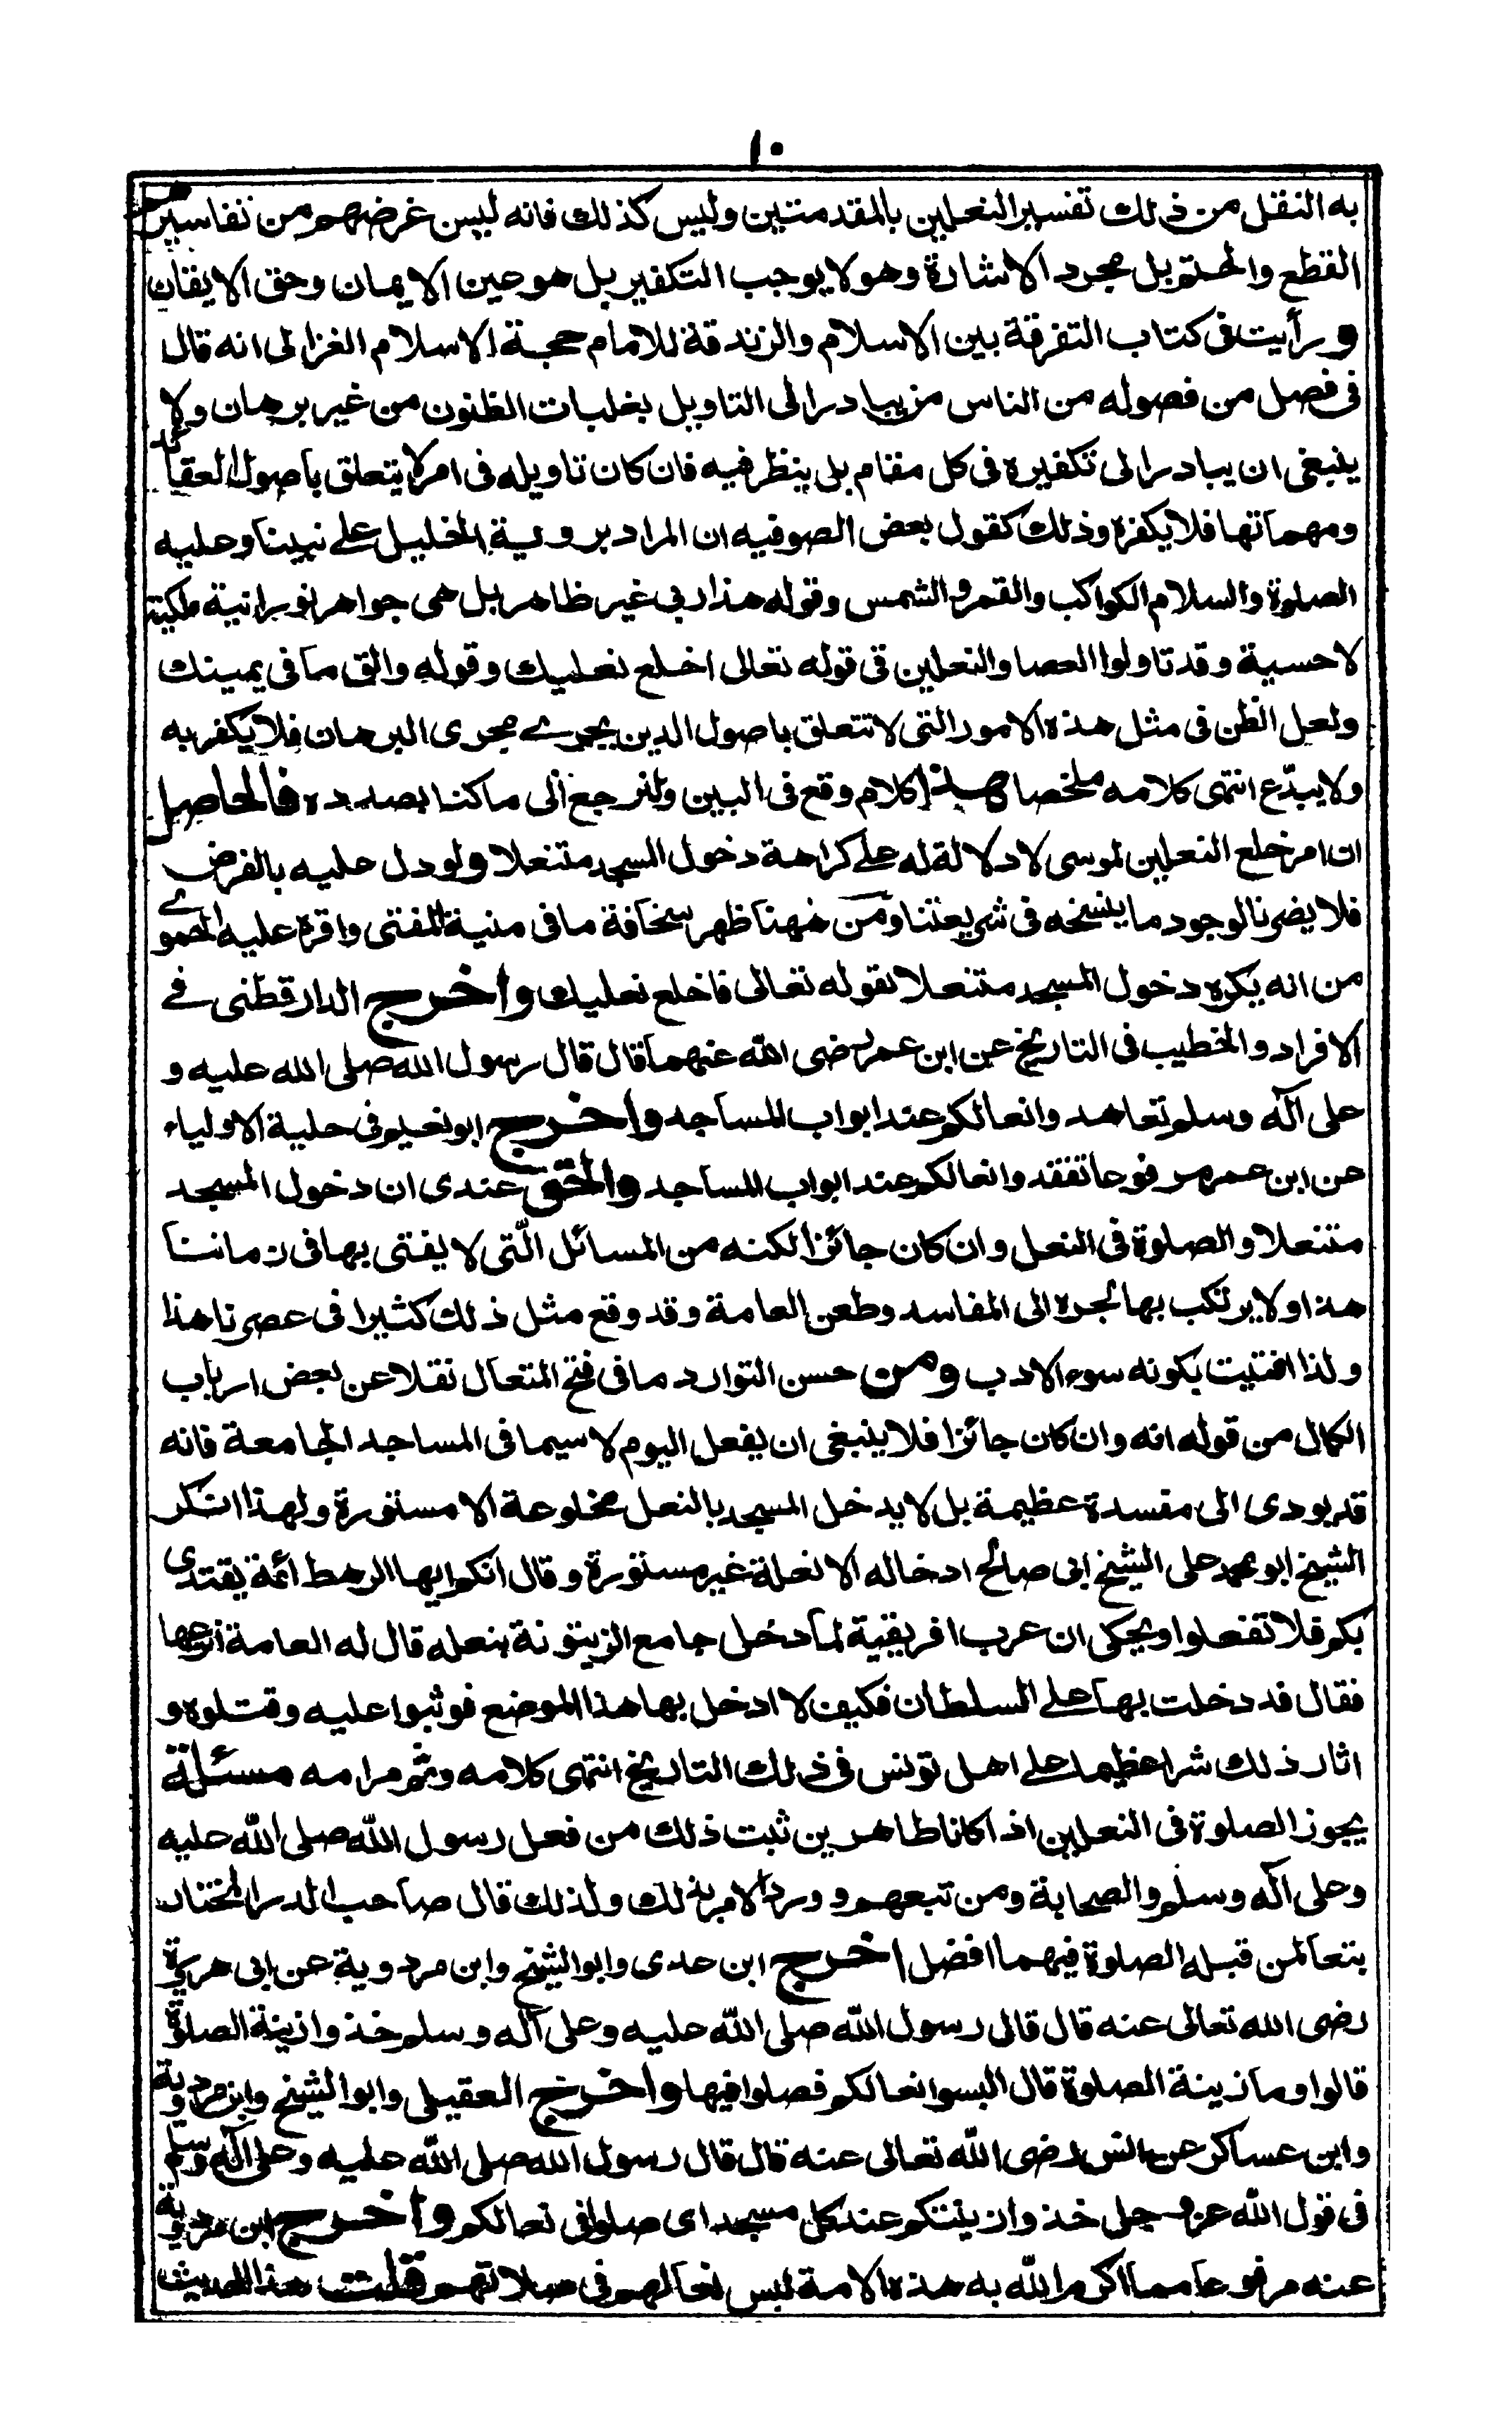 ١٠
به النقل من ذلك تفسير النعلين بالمقدمتين وليس كذلك فانه ليس غرضهم من تفاسيرهم
القطع والحتم بل مجرد الاشارة وهو لا يوجب التكفير بل هو عين الايمان وحق الايقان
ورأيت فى كتاب التفرقة بين الاسلام والزندقة للامام حجة الاسلام الغزالى انه قال
فى فصل من فصوله من الناس من يبادر الى التاويل بغلبات الظنون من غير برهان ولا
ينبغى ان يبادر الى تكفيره فى كل مقام بل ينظر فيه فان كان تاويله فى امر لا يتعلق باصول العقائد
ومهماتها فلا يكفره وذلك كقول بعض الصوفيه ان المراد بروية الخليل على نبينا وعليه
الصلوة والسلام الكواكب والقمر والشمس وقوله هذا ربى غير ظاهر بل هى جواهر نورانية ملكية
لا حسية وقد تاولوا العصا والنعلين فى قوله تعالى اخلع نعليك وقوله والق ما فى يمينك
ولعل الظن فى مثل هذه الامور التى لا تتعلق باصول الدين يجرى مجرى البرهان فلا يكفر به
ولا يبدّع انتهى كلامه ملخصا هذا كلام وقع فى البين ولنرجع الى ما كنا بصدده فالحاصل
ان امر خلع النعلين لموسى لا دلالة له على كراهة دخول المسجد متنعلا ولو دل عليه بالفرض
فلا يضرنا لوجود ما ينسخه فى شريعتنا ومن ههنا ظهر سخافة ما فى منية المفتى واقره عليه الحموى
من انه يكره دخول المسجد متنعلا لقوله تعالى فاخلع نعليك واخرج الدارقطنى فى
الافراد والخطيب فى التاريخ عن ابن عمر رضى الله عنهما قال قال رسول الله صلى الله عليه و
على آله وسلم تعاهدوا نعالكم عند ابواب المساجد واخرج ابو نعيم فى حلية الاولياء
عن ابن عمر مرفوعا تفقدوا نعالكم عند ابواب المساجد والحق عندى ان دخول المسجد
متنعلا والصلوة فى النعل وان كان جائزا لكنه من المسائل الّتى لا يفتى بها فى زماننا
هذا ولا يرتكب بها لجره الى المفاسد وطعن العامة وقد وقع مثل ذلك كثيرا فى عصرنا هذا
ولذا افتيت بكونه سوء الادب ومن حسن التوارد ما فى فتح المتعال نقلا عن بعض ارباب
الكمال من قوله انه وان كان جائزا فلا ينبغى ان يفعل اليوم لا سيما فى المساجد الجامعة فانه
قد يودى الى مفسدة عظيمة بل لا يدخل المسجد بالنعل مخلوعة الا مستورة ولهذا انكر
الشيخ ابو محمد على الشيخ ابى صالح ادخاله الا نعلة غير مستورة وقال انكم ايها الرهط ائمة يقتدى
بكم فلا تفعلوا ويحكى ان عرب افريقية لما دخل جامع الزيتونة بنعله قال له العامة انزعها
فقال قد دخلت بها على السلطان فكيف لا ادخل بها هذا الموضع فوثبوا عليه وقتلوه و
اثار ذلك شرا عظيما على اهل تونس فى ذلك التاريخ انتهى كلامه وتم مرامه مسئلة
يجوز الصلوة فى النعلين اذا كانا طاهرين ثبت ذلك من فعل رسول الله صلى الله عليه
وعلى آله وسلم والصحابة ومن تبعهم وورد الامر بذلك ولذلك قال صاحب الدر المختار
بتعا لمن قبله الصلوة فيهما افضل اخرج ابن عدى وابو الشيخ وابن مردوية عن ابى هريرة
رضى الله تعالى عنه قال قال رسول الله صلى الله عليه وعلى آله وسلم خذوا زينة الصلوة
قالوا وما زينة الصلوة قال البسوا نعالكم فصلوا فيها واخرج العقيلى وابو الشيخ وابن مردوية
وابن عساكر عن انس رضى الله تعالى عنه قال قال رسول الله صلى الله عليه وعلى آله وسلم
فى قول الله عز وجل خذوا زينتكم عند كل مسجد اى صلوا فى نعالكم واخرج ابن مردوية
عنه مرفوعا مما اكرم الله به هذه الامة لبس نعالهم فى صلاتهم قلت هذا الحديث